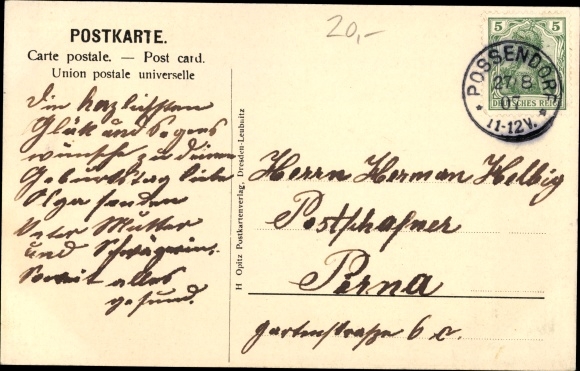 20,-
POSTKARTE.
Carte postale. — Post card.
Union postale universelle
5 5
DEUTSCHES REICH
POSSENDORF
27/8
07
* 11-12V. *
Die herzlichsten
Glük und Segens
wünsche zu deinem
Geburtstag liebe
Olga senden
Vater Mutter
und Schwägerin.
Soweit alles
gesund.
H Opitz Postkartenverlag, Dresden-Leubnitz
Herrn Herman Helbig
Postschafner
Perna
Gartenstraße 6 c.